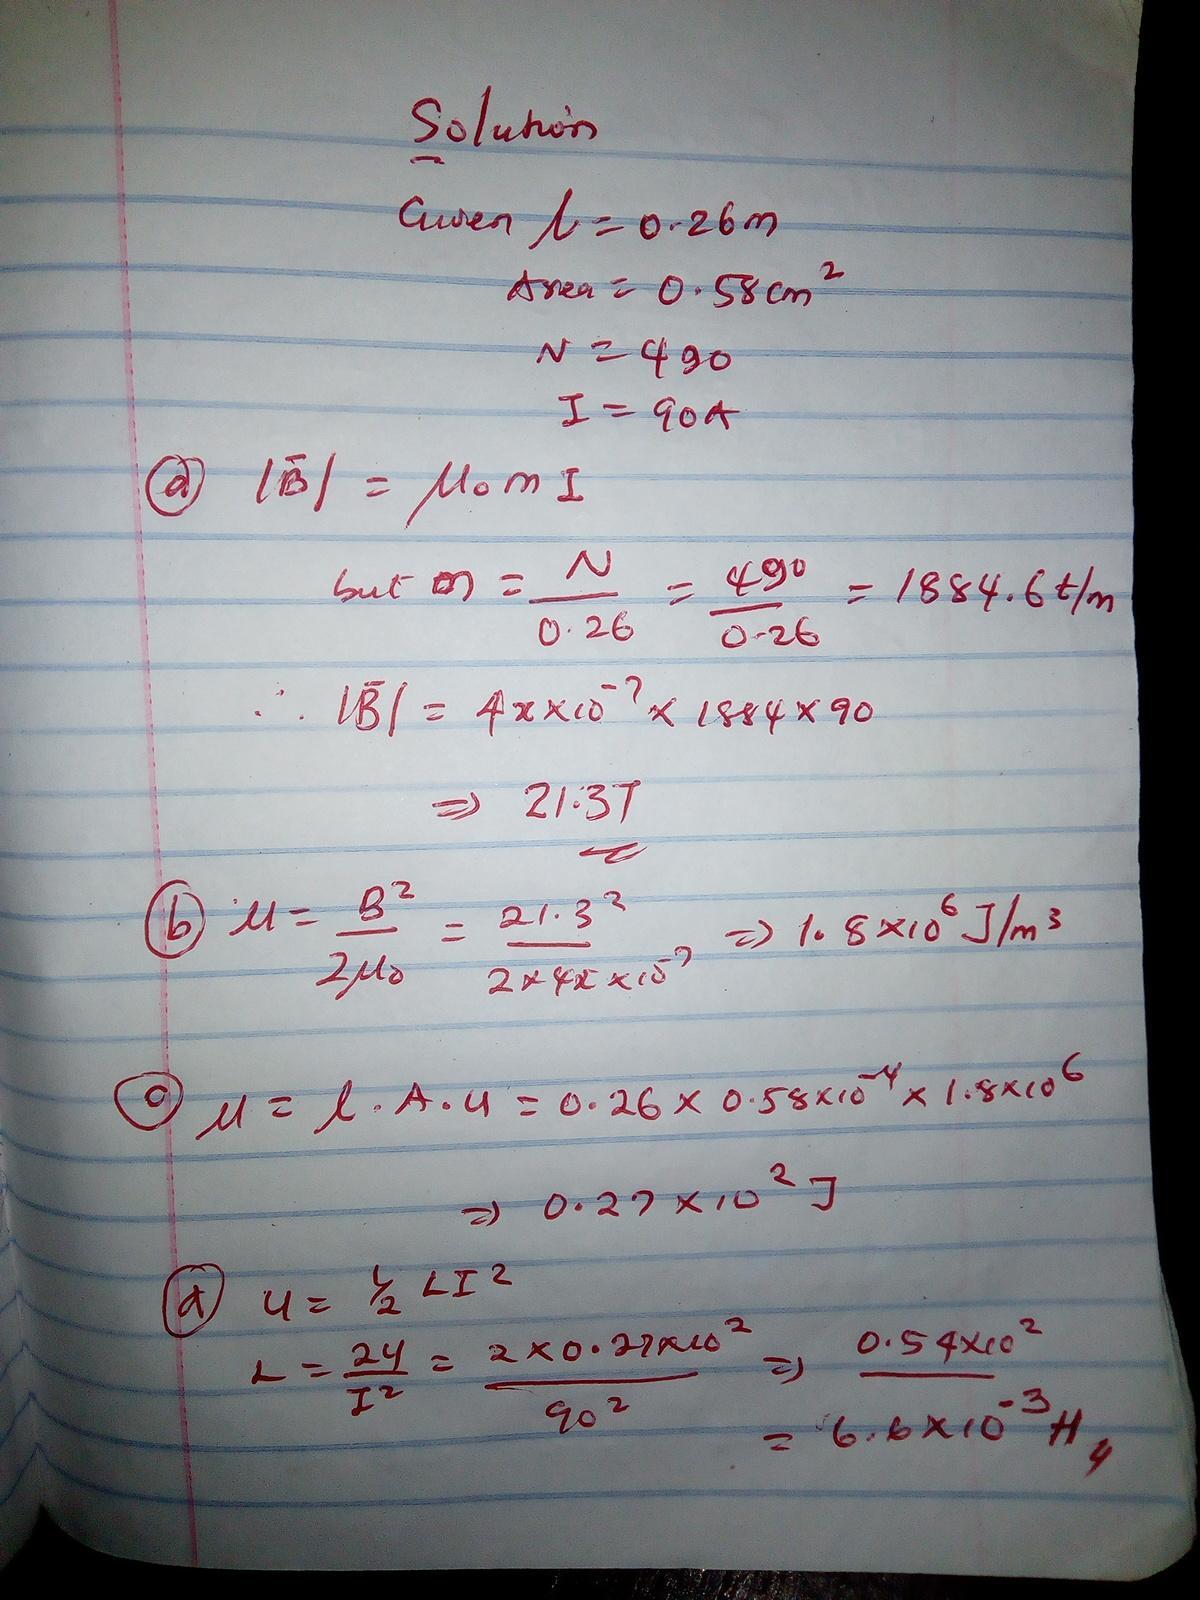 Solution
Given l = 0.26m
Area = 0.58cm²
N = 490
I = 90A
(a) |B̄| = μ₀ n I
but n = N/0.26 = 490/0.26 = 1884.6 t/m
∴ |B̄| = 4π×10⁻⁷ × 1884 × 90
⇒ 21.3T
(b) u = B²/2μ₀ = 21.3²/2×4π×10⁻⁷ ⇒ 1.8×10⁶ J/m³
(c) u = l.A.u = 0.26 × 0.58×10⁻⁴ × 1.8×10⁶
⇒ 0.27 × 10² J
(d) u = 1/2 LI²
L = 2u/I² = 2×0.27×10²/90² ⇒ 0.54×10²
= 6.6×10⁻³ H